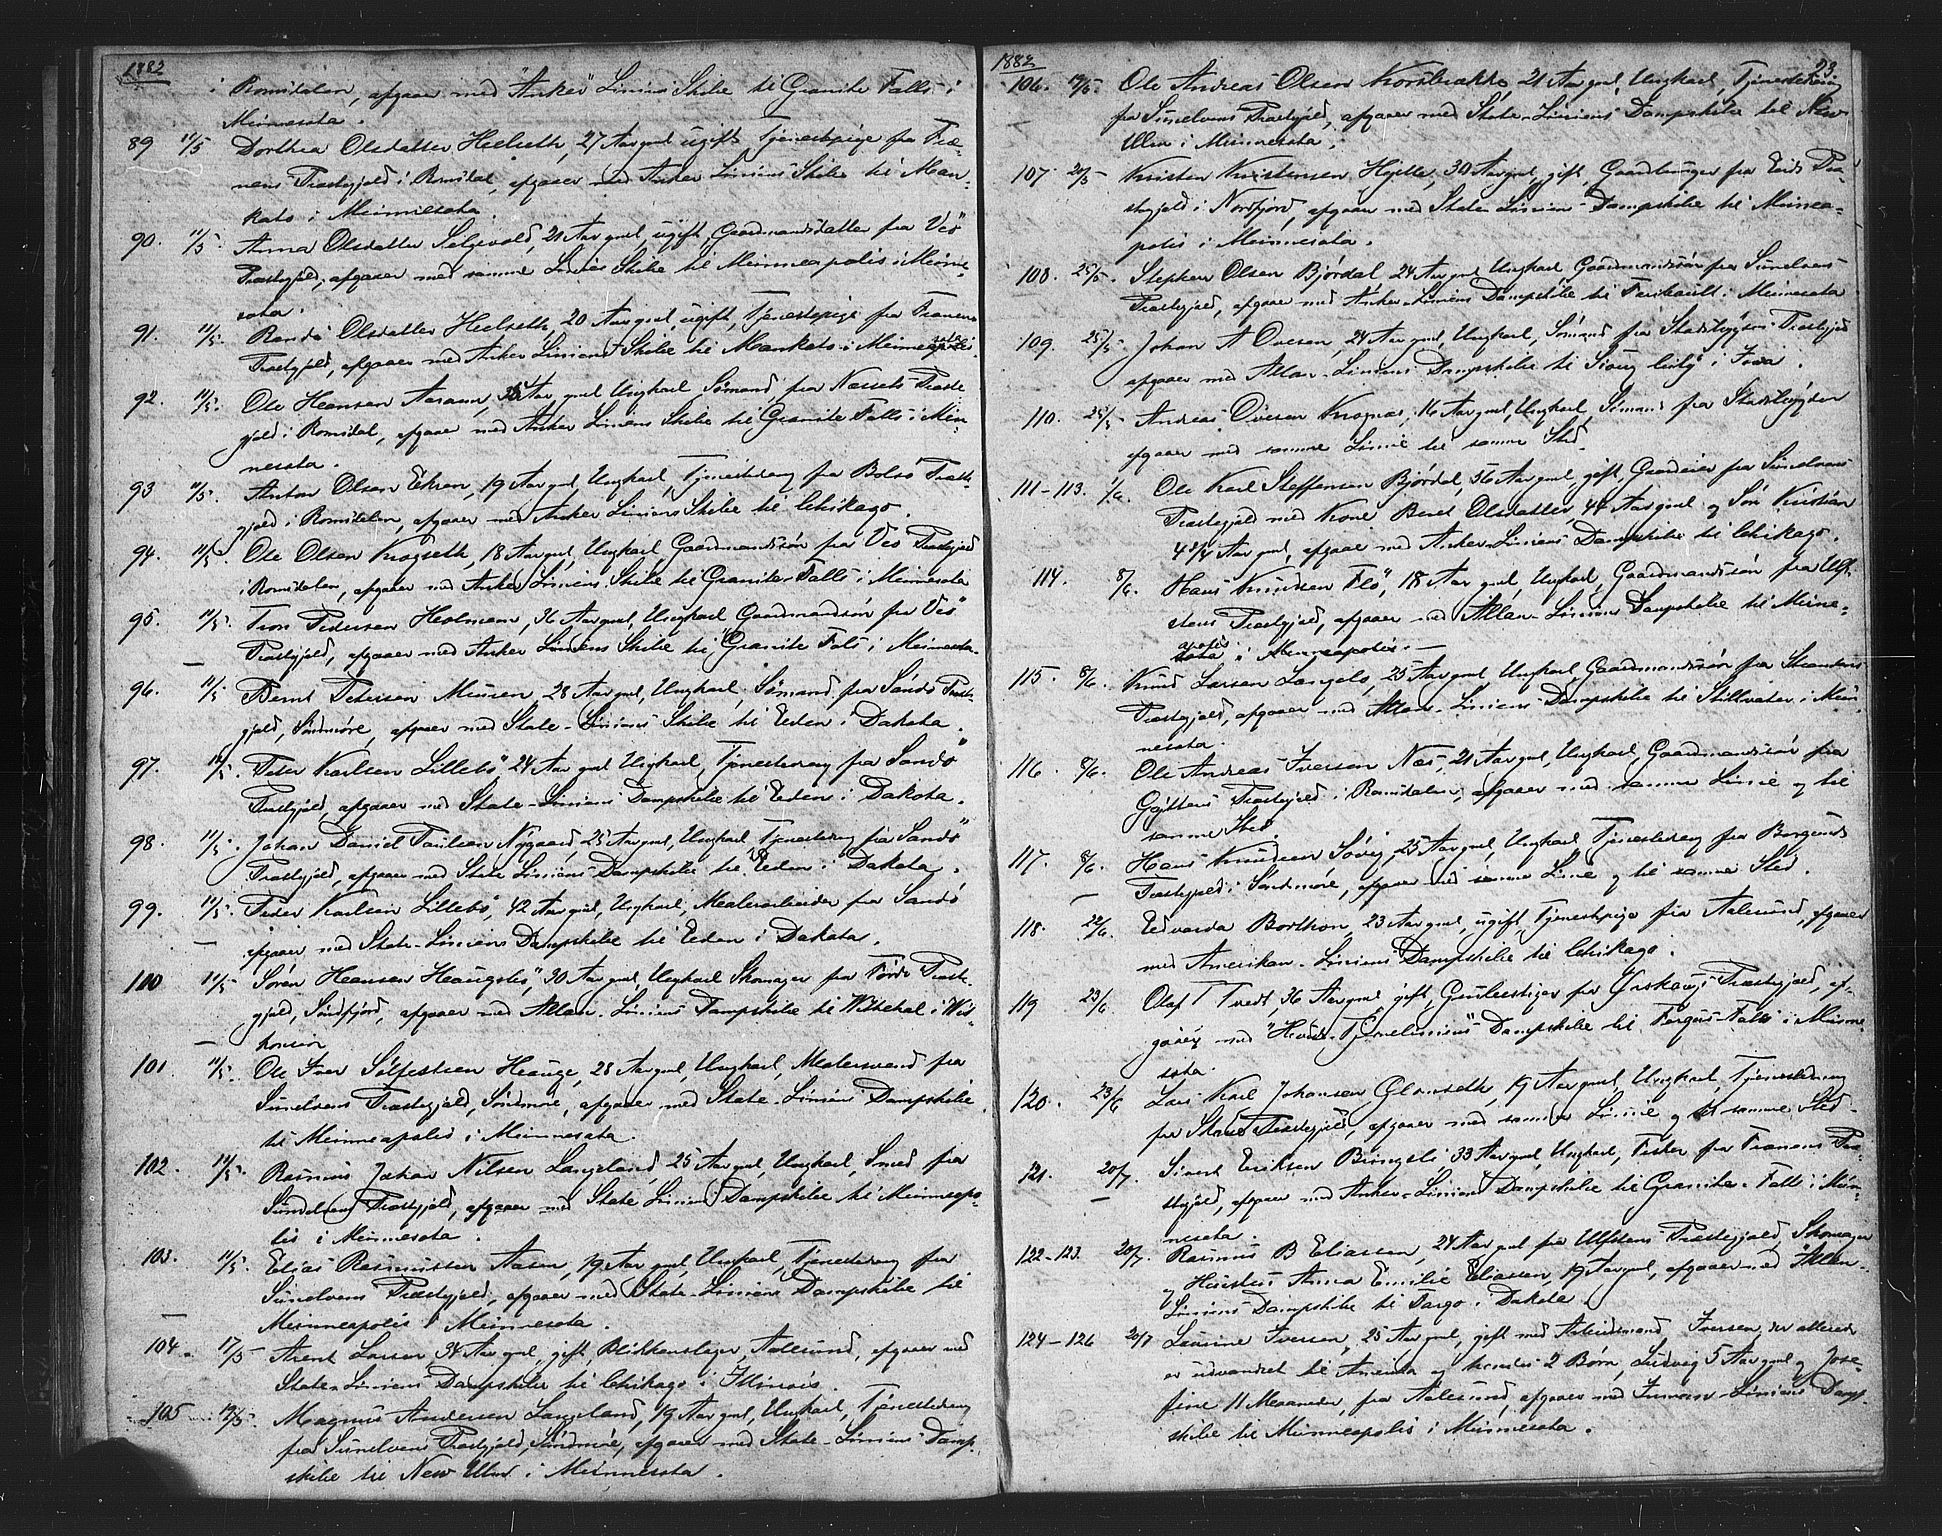 1882
i Romsdalen, afgaar med "Anker" Liniens Skibe til Granite Falls i
Minnesota.
89 11/5 Dorthea Olsdatter Helseth, 27 Aar gml, ugift Tjenestepige fra Træ-
nens Præstegjeld i Romsdal, afgaar med Anker Liniens Skibe til Man-
kato i Minnesota.
90. 11/5. Anna Olsdatter Selgevold, 21 Aar gml, ugift, Gaardmandsdatter fra Vеø
Præstegjeld, afgaar med samme Linies Skibe til Minneapolis i Minne-
sota.
91. 11/5. Randi Olsdatter Helseth, 20 Aar gml, ugift, Tjenestepige fra Tranens
Præstegjeld, afgaar med Anker Liniens Skibe til Mankato i Minnesota.
92. 11/5. Ole Hansen Aaram, Aar gml, Ungkarl Sømand fra Næssets Præste-
gjeld i Romsdal, afgaar med Anker Liniens Skibe til Granite Falls i Min-
nesota.
93 11/5. Anton Olsen Ekren, 19 Aar gml, Ungkarl, Tjenestedreng fra Bolsø Præste-
gjeld i Romsdalen, afgaar med Anker Liniens Skibe til Chikago.
94. 11/5. Ole Olsen Krogseth, 18 Aar gml, Ungkarl, Gaardmandssøn fra Veø Præstegjeld
i Romsdalen, afgaar med Anker Liniens Skibe til Granite-Falls i Minnesota
95. 11/5. Tron Pedersen Holmem, 36 Aar gml, Ungkarl Gaardmandssøn fra Veø
Præstegjeld, afgaar med Anker Liniens Skibe til Granite Fals i Minnesota.
96. 11/5 Bernt Petersen Muren, 28 Aar gml, Ungkarl, Sømand, fra Sandø Præste-
gjeld, Søndmøre, afgaar med State-Liniens Skibe til Eden i Dakota.
97. 11/5. Peter Karlsen Lillebø, 24 Aar gml Ungkarl, Tjenestedreng fra Sandø
Præstegjeld, afgaar med State-Liniens Dampskibe til Eden i Dakota.
98. 11/5. Johan Daniel Paulsen Nygaard 25 Aar gml, Ungkarl Tjenestedreng fra Sandø
Præstegjeld, afgaar med State Liniens Dampskibe til Eden i Dakota.
99. 11/5. Peder Karlsen Lillebø, 42 Aar gml, Ungkarl, Malerarbeider fra Sandø
afgaar med State-Liniens Dampskibe til Eden i Dakota.
100 11/5 Søren Hansen Haugsbø, 30 Aar gml, Ungkarl Skomager fra Førde Præste-
gjeld, Søndfjord, afgaar med Allan-Liniens Dampskibe til Withehal i Wis-
konsin
101. 11/5. Ole Iver Sølfestsen Hauge, 28 Aar gml, Ungkarl, Malersvend fra
Sunelvens Præstegjeld, Søndmøre, afgaar med State-Liniens Dampskibe
til Minneapolis i Minnesota.
102. 11/5. Rasmus Johan Nilsen Langeland, 25 Aar gml, Ungkarl, Smed fra
Sunelvens Præstegjeld, afgaar med State Liniens Dampskibe til Minneapo-
lis i Minnesota.
103. 11/5. Elias Rasmussen Aasen, 19 Aar gml, Ungkarl, Tjenestedreng fra
Sunelvens Præstegjeld, afgaar med State-Liniens Dampskibe til
Minneapolis i Minnesota.
104. 17/5 Arent Larsen, 34 Aar gml, gift, Blikkenslager Aalesund, afgaar med
State-Liniens Dampskibe til Chikago i Illinois.
105 19/5. Magnus Andersen Langeland, 19 Aar gml, Ungkarl, Tjenestedreng
fra Sunelvens Præstegjeld, Søndmøre, afgaar med State-Liniens Damp-
skibe til New Ulm i Minnesota.
1882 23
106. 19/5. Ole Andreas Olsen Korsbrække, 21 Aar gml, Ungkarl, Tjenestedreng
fra Sunelvens Præstegjeld, afgaar med State-Liniens Dampskibe til New
Ulm i Minnesota.
107 20/5 Kristen Kristensen Hjelle, 30 Aar gml, gift, Gaardbruger fra Eids Præ-
stegjeld i Nordfjord, afgaar med State-Linien Dampskibe til Minnea-
polis i Minnesota.
108. 25/5. Stephen Olsen Bjørdal, 24 Aar gml, Ungkarl Gaardmandssøn fra Sunelvens
Præstegjeld, afgaar med Anker-Liniens Dampskibe til Faribault i Minnesota
109. 25/5. Johan A Ovesen, 24 Aar gml, Ungkarl, Sømand fra Stadsbygden Præstegjeld
afgaar med Allan-Liniens Dampskibe til Sioug City i Iova.
110. 25/5. Andreas Ovesen Kragnæs, 16 Aar gml, Ungkarl, Sømand fra Stadsbygden
afgaar med samme Linie til samme Sted.
111-113. 1/6. Ole Karl Steffensen Bjørdal, 56 Aar gml, gift, Gaardeier fra Sunelvens
Præstegjeld med Kone Beret Olsdatter, 44 Aar gml og Søn Kristian
4 3/4 Aar gml, afgaar med Anker-Liniens Dampskibe til Chikago.
114. 8/6. Hans Knudsen Flø, 18 Aar gml, Ungkarl, Gaardmandssøn fra Ulf-
stens Præstegjeld, afgaar med Allan-Liniens Dampskibe til Minne-
apolis i Minneapolis.
115. 8/6. Knud Larsen Langlo, 25 Aar gml, Ungkarl, Gaardmandssøn fra Strandens
Præstegjeld, afgaar med Allan-Liniens Dampskibe til Stillvater i Min-
nesota.
116 8/6. Ole Andreas Iversen Næs, 21 Aar gml, Ungkarl, Gaardmandssøn fra
Gryttens Præstegjeld i Romsdalen, afgaar med samme Linie og til
samme Sted.
117. 8/6. Hans Knudsen Søvig, 25 Aar gml, Ungkarl Tjenestedreng fra Borgunds
Præstegjeld i Søndmøre, afgaar med samme Linie og til samme Sted.
118. 22/6. Edvarda Borthon, 23 Aar gml, ugift, Tjenestepige fra Aalesund, afgaar
med Amerikan-Liniens Dampskibe til Chikago.
119 23/6 Olaf T Tvedt, 36 Aar gml gift, fra Ørskougs Præstegjeld, af-
gaar med "Hvide-Stjernelinien" Dampskibe til Fergus-Falls i Minne-
sota.
120. 23/6 Lars Karl Johansen Glomseth, 19 Aar gml, Ungkarl, Tjenestedreng
fra Skaue Præstegjeld, afgaar med samme Linie og til samme Sted.
121. 20/7. Sivert Eriksen Bringsli 33 Aar gml, Ungkarl, Fisker fra Tranens Præ-
stegjeld, afgaar med Anker-Liniens Dampskibe til Granite-Falls i Min-
nesota.
122-123. 20/7. Rasmus B Eliassen, 24 Aar gml fra Ulfstens Præstegjeld, Skomager
og Hustru Anna Emilie Eliassen, 19 Aar gml, afgaar med Allan-
Liniens Dampskibe til Fargo i Dakota.
124-126 20/7 Laurine Iversen, 25 Aar gml, gift med Arbeidsmand Iversen, der allerede
er udvandret til Amerika og hendes 2 Børn, Ludvig 5 Aar gml og Jose-
fine 11 Maaneder, fra Aalesund, afgaar med Inman-Liniens Damp-
skibe til Minneapolis i Minnesota.